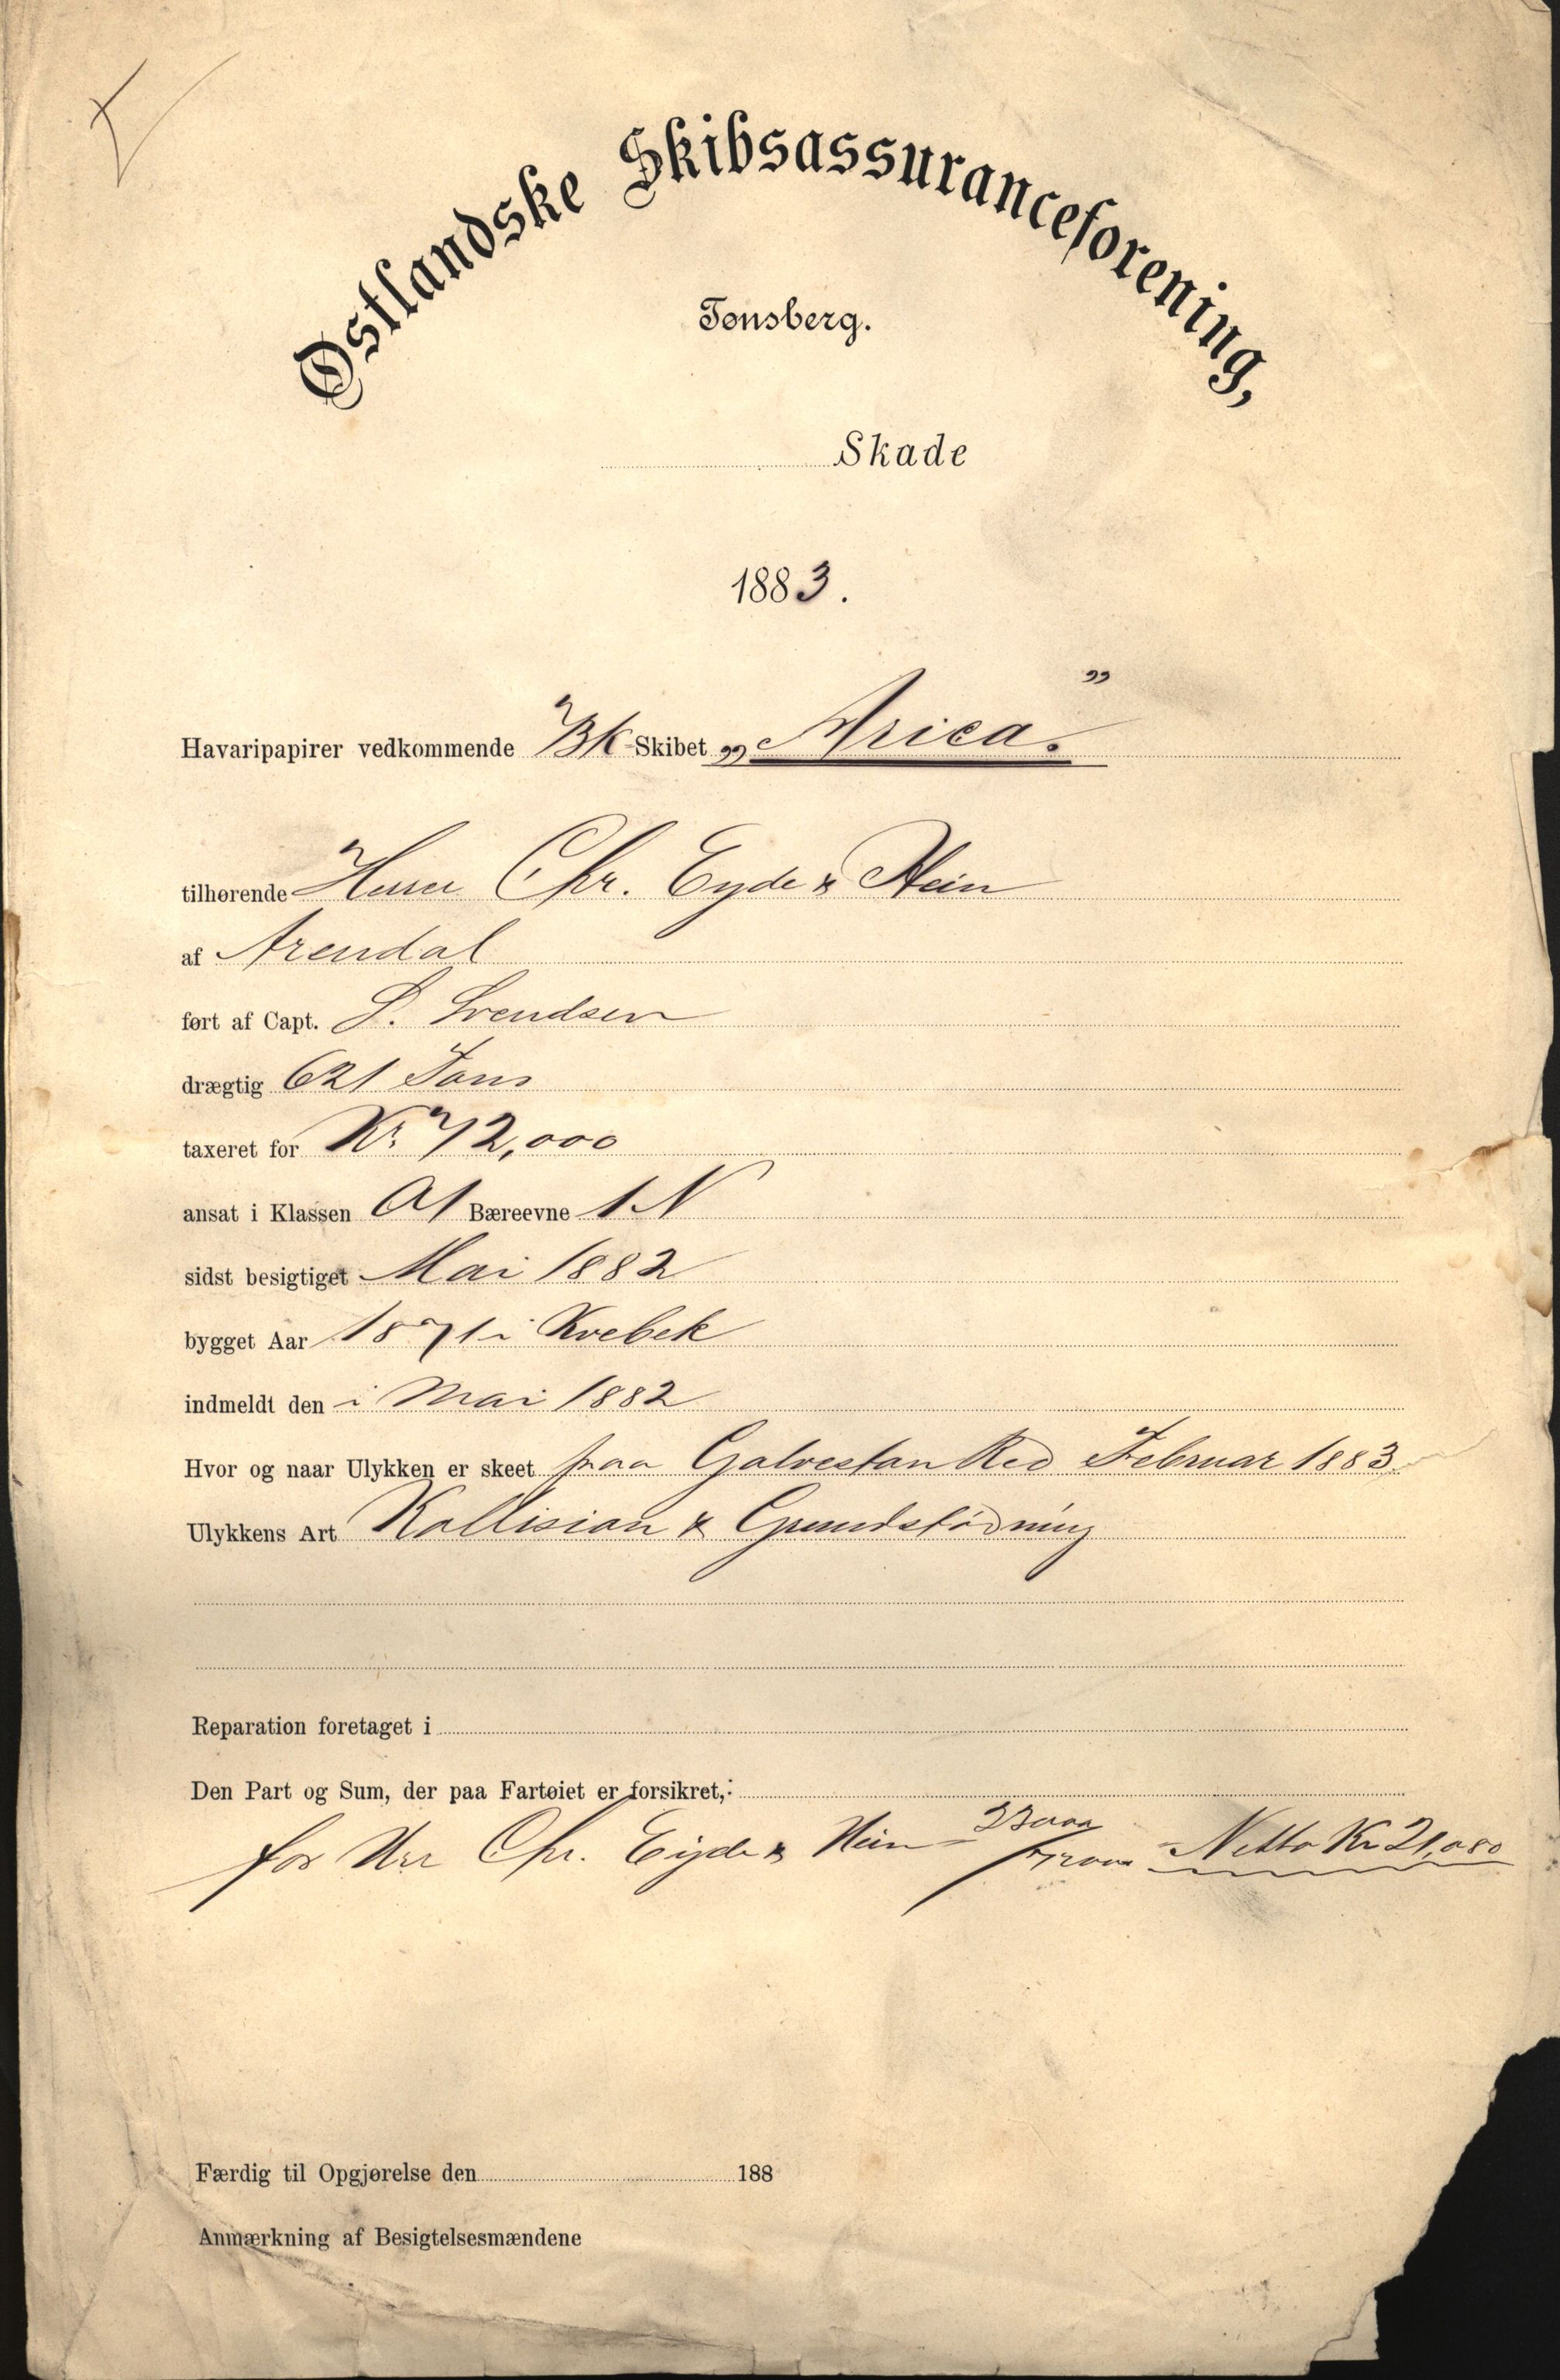 Østlandske Skibsassuranceforening,
Tønsberg.
Skade
1883.
Havaripapirer vedkommende Bk Skibet „Arica."
tilhørende Herrer Chr. Eyde & Hein
af Arendal
ført af Capt. S. Svendsen
drægtig 621 Tons
taxeret for Kr. 72,000
ansat i Klassen A1 Bæreevne 1 N
sidst besigtiget Mai 1882
bygget Aar 1871 i Kvebek
indmeldt den i Mai 1882
Hvor og naar Ulykken er skeet paa Galveston Red Februar 1883
Ulykkens Art Kollision & Grundstødning
Reparation foretaget i
Den Part og Sum, der paa Fartøiet er forsikret,:
for Hrr Chr. Eyde & Hein Netto Kr 21,080
Færdig til Opgjørelse den 188
Anmærkning af Besigtelsesmændene